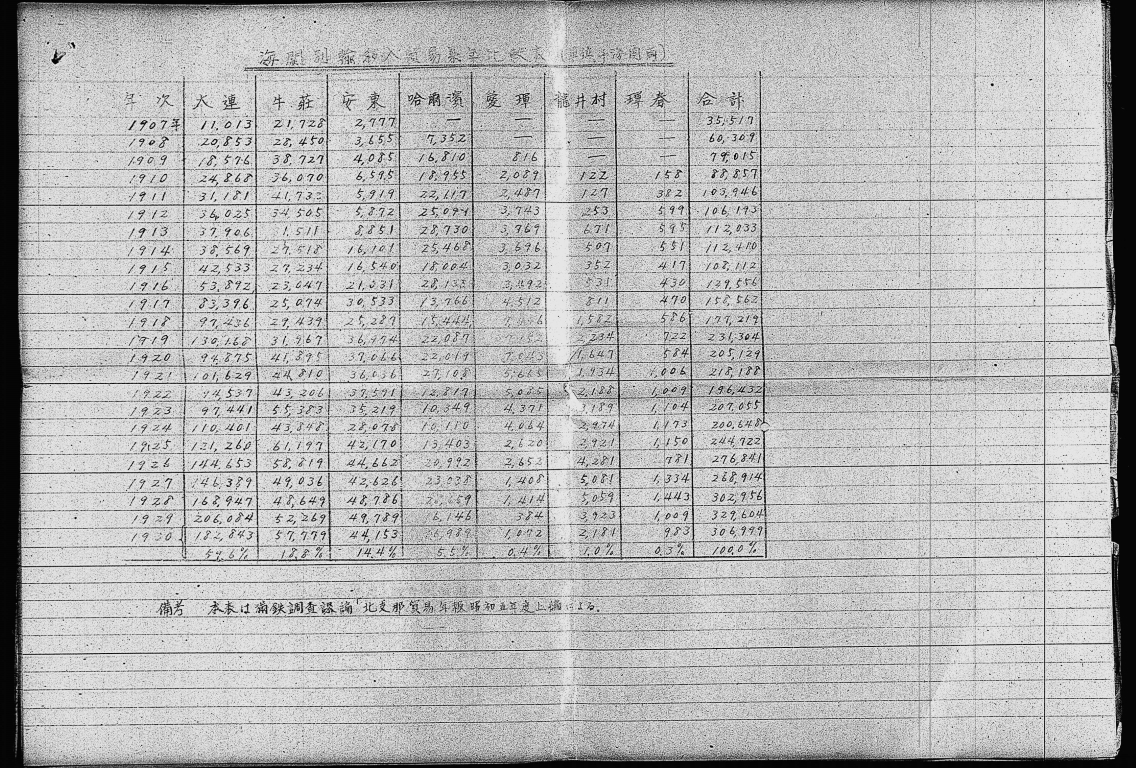 海関別輸移入貿易累年比較表(単位千海関両)
年次 大連 牛莊 安東 哈爾濱 愛琿 龍井村 琿春 合計
1907年 11,013 21,728 2,777 — — — — 35,517
1908 20,853 28,450 3,655 7,352 — — — 60,309
1909 18,576 38,727 4,085 16,810 816 — — 79,015
1910 24,868 36,070 6,595 18,955 2,089 122 158 88,857
1911 31,181 41,732 5,919 22,117 2,487 127 382 103,946
1912 36,025 34,505 5,872 25,094 3,743 253 599 106,193
1913 37,906 1,511 8,851 28,730 3,769 671 595 112,033
1914 38,569 27,518 16,101 25,468 3,696 507 551 112,410
1915 42,533 27,234 16,540 18,004 3,032 352 417 108,112
1916 53,892 23,047 21,031 28,132 2,492 531 430 129,556
1917 83,396 25,074 30,533 13,766 4,512 811 470 158,562
1918 97,436 29,439 25,287 15,444 1,582 586 177,219
1919 130,168 31,967 36,974 22,087 2,234 722 231,304
1920 94,875 41,895 37,066 22,019 7,043 1,647 584 205,129
1921 101,629 44,810 36,036 27,108 5,665 1,934 1,006 218,188
1922 94,537 43,206 37,591 12,817 5,085 2,188 1,009 196,432
1923 97,441 55,383 35,219 10,349 4,371 3,189 1,104 207,055
1924 110,401 43,848 28,078 10,110 4,064 2,974 1,173 200,648
1925 121,260 61,197 42,170 13,403 2,620 2,921 1,150 244,722
1926 144,653 58,819 44,662 20,992 2,652 4,281 781 276,841
1927 146,389 49,036 42,626 23,038 1,408 5,081 1,334 268,914
1928 168,947 48,649 48,786 1,414 5,059 1,443 302,956
1929 206,084 52,269 49,789 16,146 384 3,923 1,009 329,604
1930 182,843 57,779 44,153 16,989 1,072 2,181 983 306,999
59.6% 18.8% 14.4% 5.5% 0.4% 1.0% 0.3% 100.0%
備考 本表は満鉄調査課編「北支那貿易年報昭和五年度上編による.